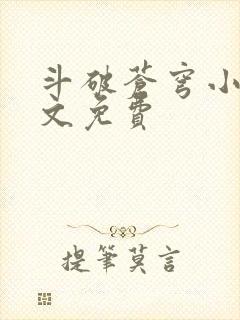 斗破苍穹小
文免費
提筆莫言